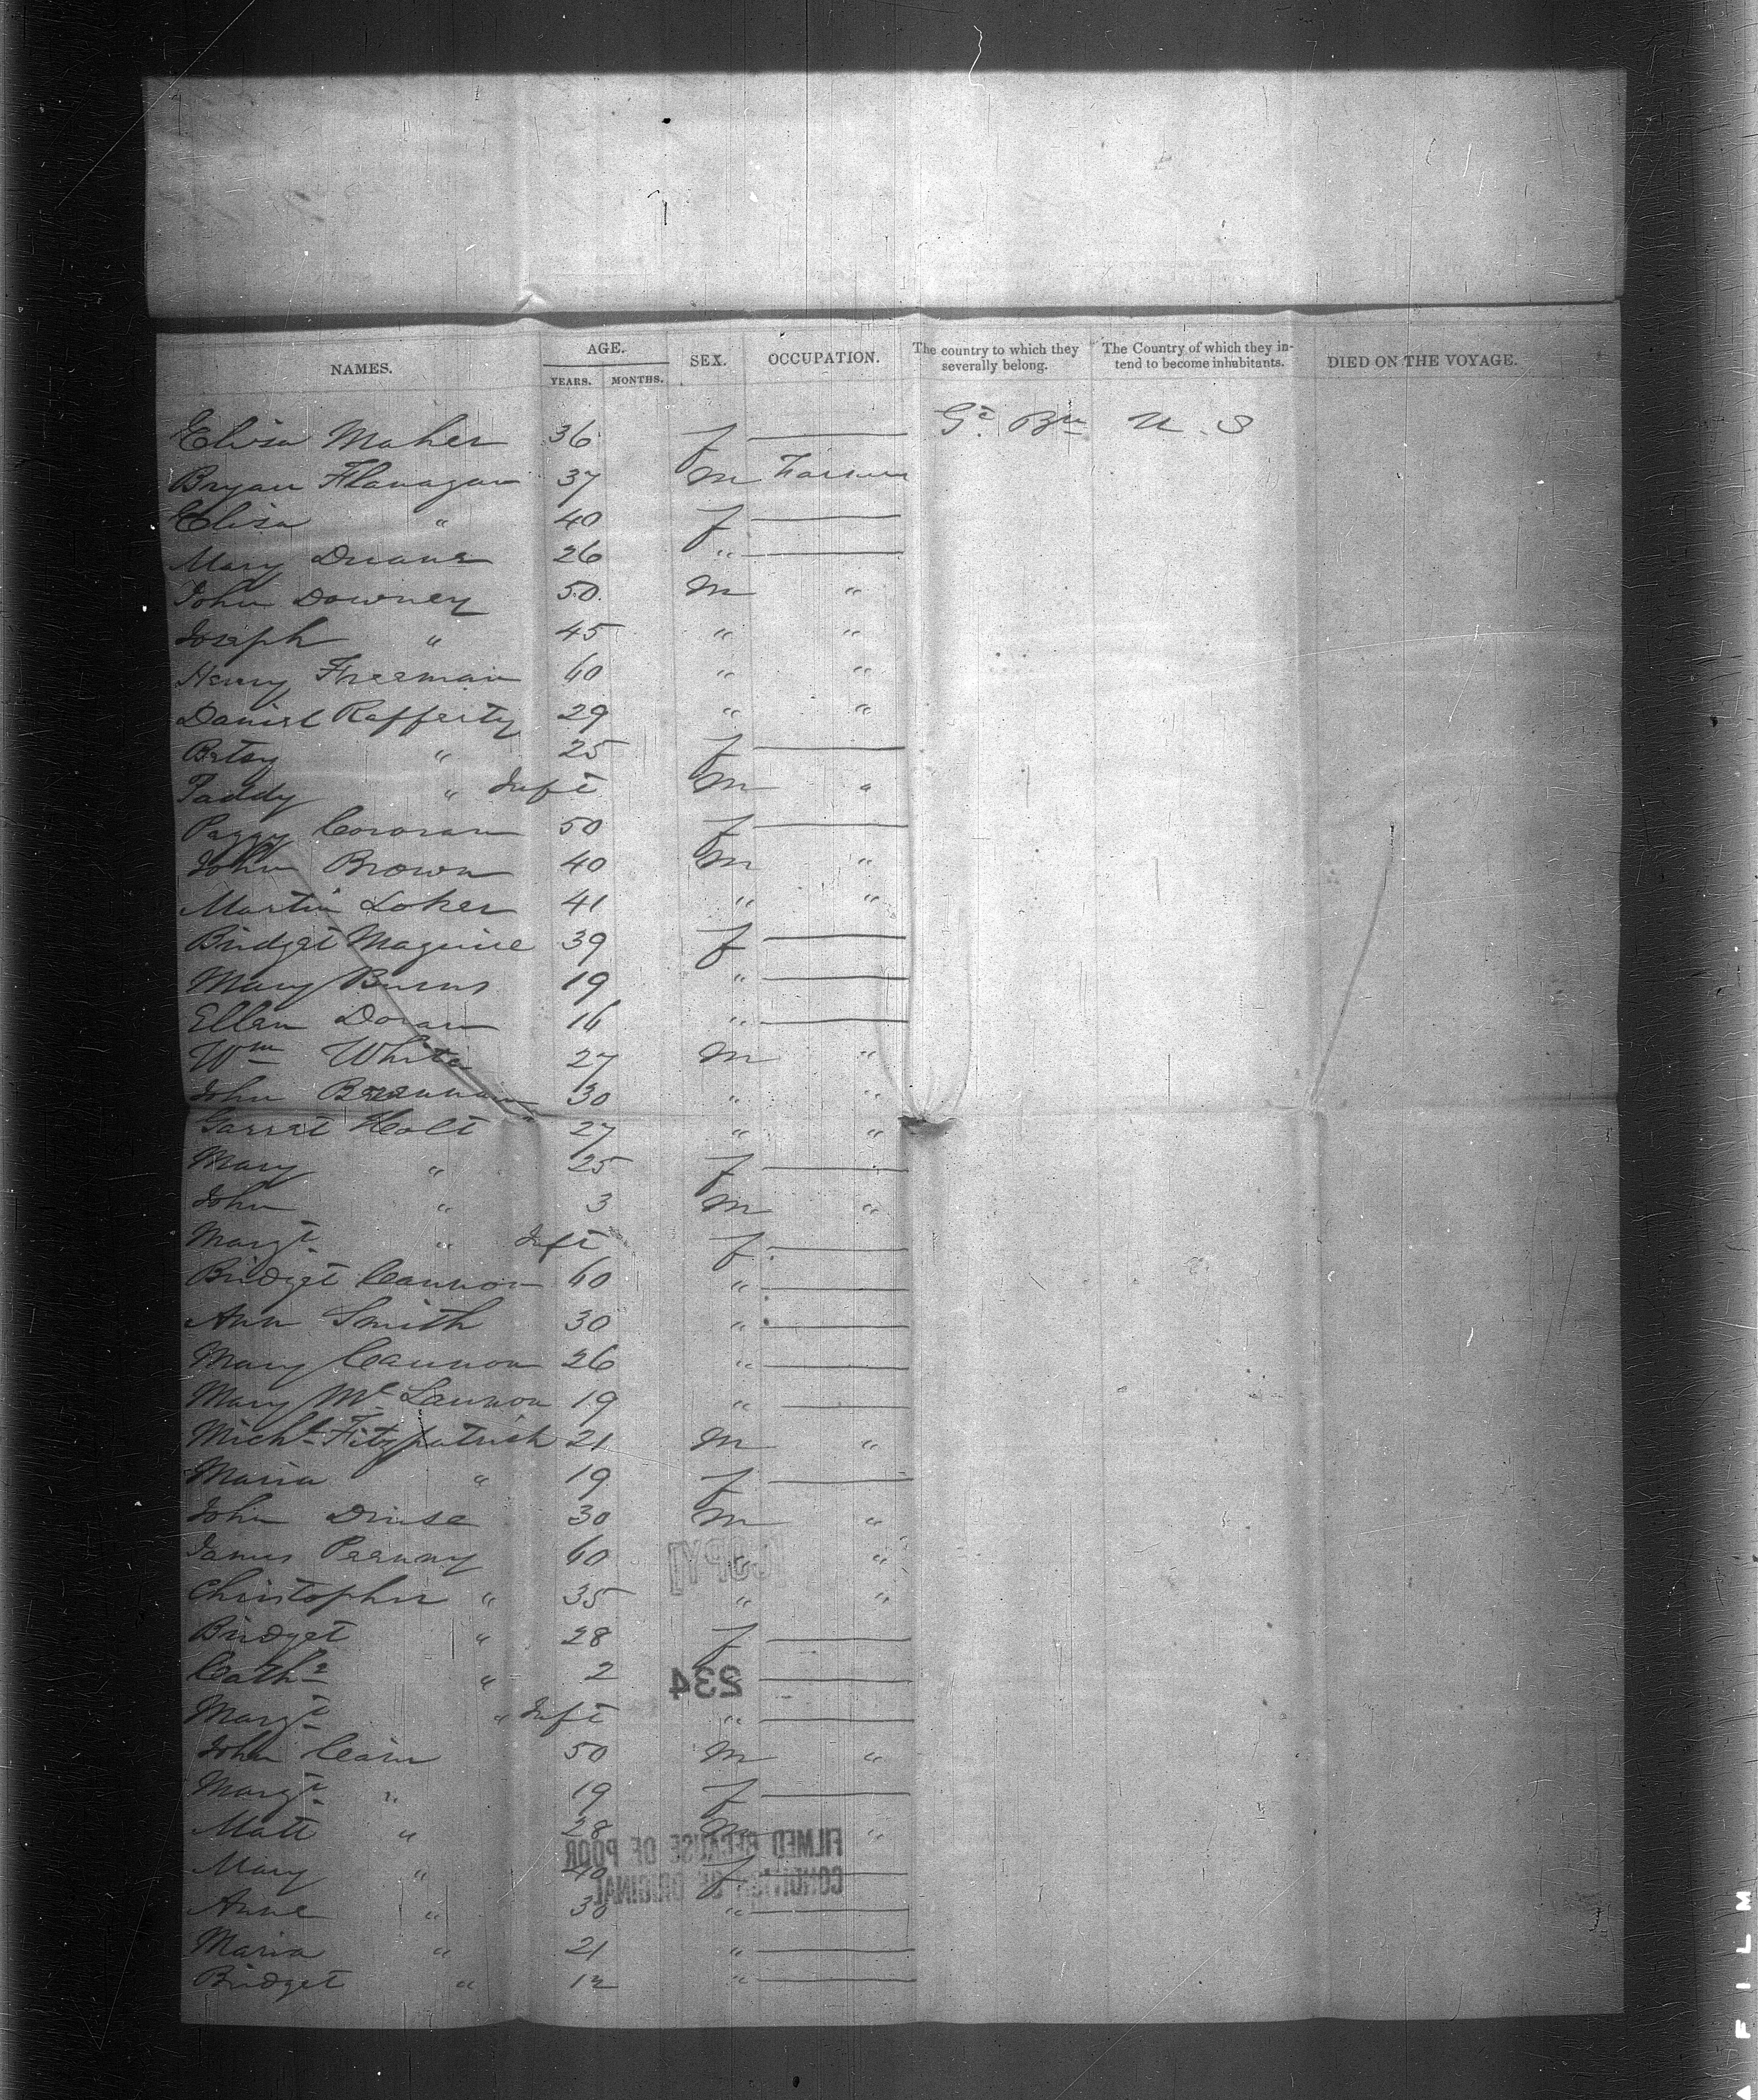 NAMES. AGE. YEARS. MONTHS. SEX. OCCUPATION. The country to which they severally belong. The Country of which they intend to become inhabitants. DIED ON THE VOYAGE.
Elisa Maher 36 f — Gt. Bn U. S
Bryan Flanagan 37 M Farmer
Elisa " 40 f —
Mary Duane 26 " —
John Downey 50 M "
Joseph " 45 " "
Henry Freeman 40 " "
Daniel Rafferty 29 " "
Betsy " 25 f —
Paddy " Inft M "
Peggy Corcoran 50 f —
John Brown 40 M "
Martin Loker 41 " "
Bridget Maguire 39 f —
Mary Burns 19 " —
Ellen Doran 16 " —
Wm White 27 M "
John Brennan 30 " "
Garret Holt 27 " "
Mary " 25 f —
John " 3 M "
Margt " Inft f —
Bridget Cannon 40 " —
Ann Smith 30 " —
Mary Cannon 26 " —
Mary Mc Lannon 19 " —
Michl Fitzpatrick 21 M "
Maria " 19 f —
John 30 M "
James 40 " "
Christopher " 35 " "
Bridget " 28 f —
Cathe " 2 —
Margt " Inft " —
John Cain 50 M "
Margt " 19 f —
Matt " 28 M "
Mary " 40 f —
Anne " 30 " —
Maria " 21 " —
Bridget " 12 " —
COPY
234
FILMED BECAUSE OF POOR
CONDITION OF ORIGINAL
FILM